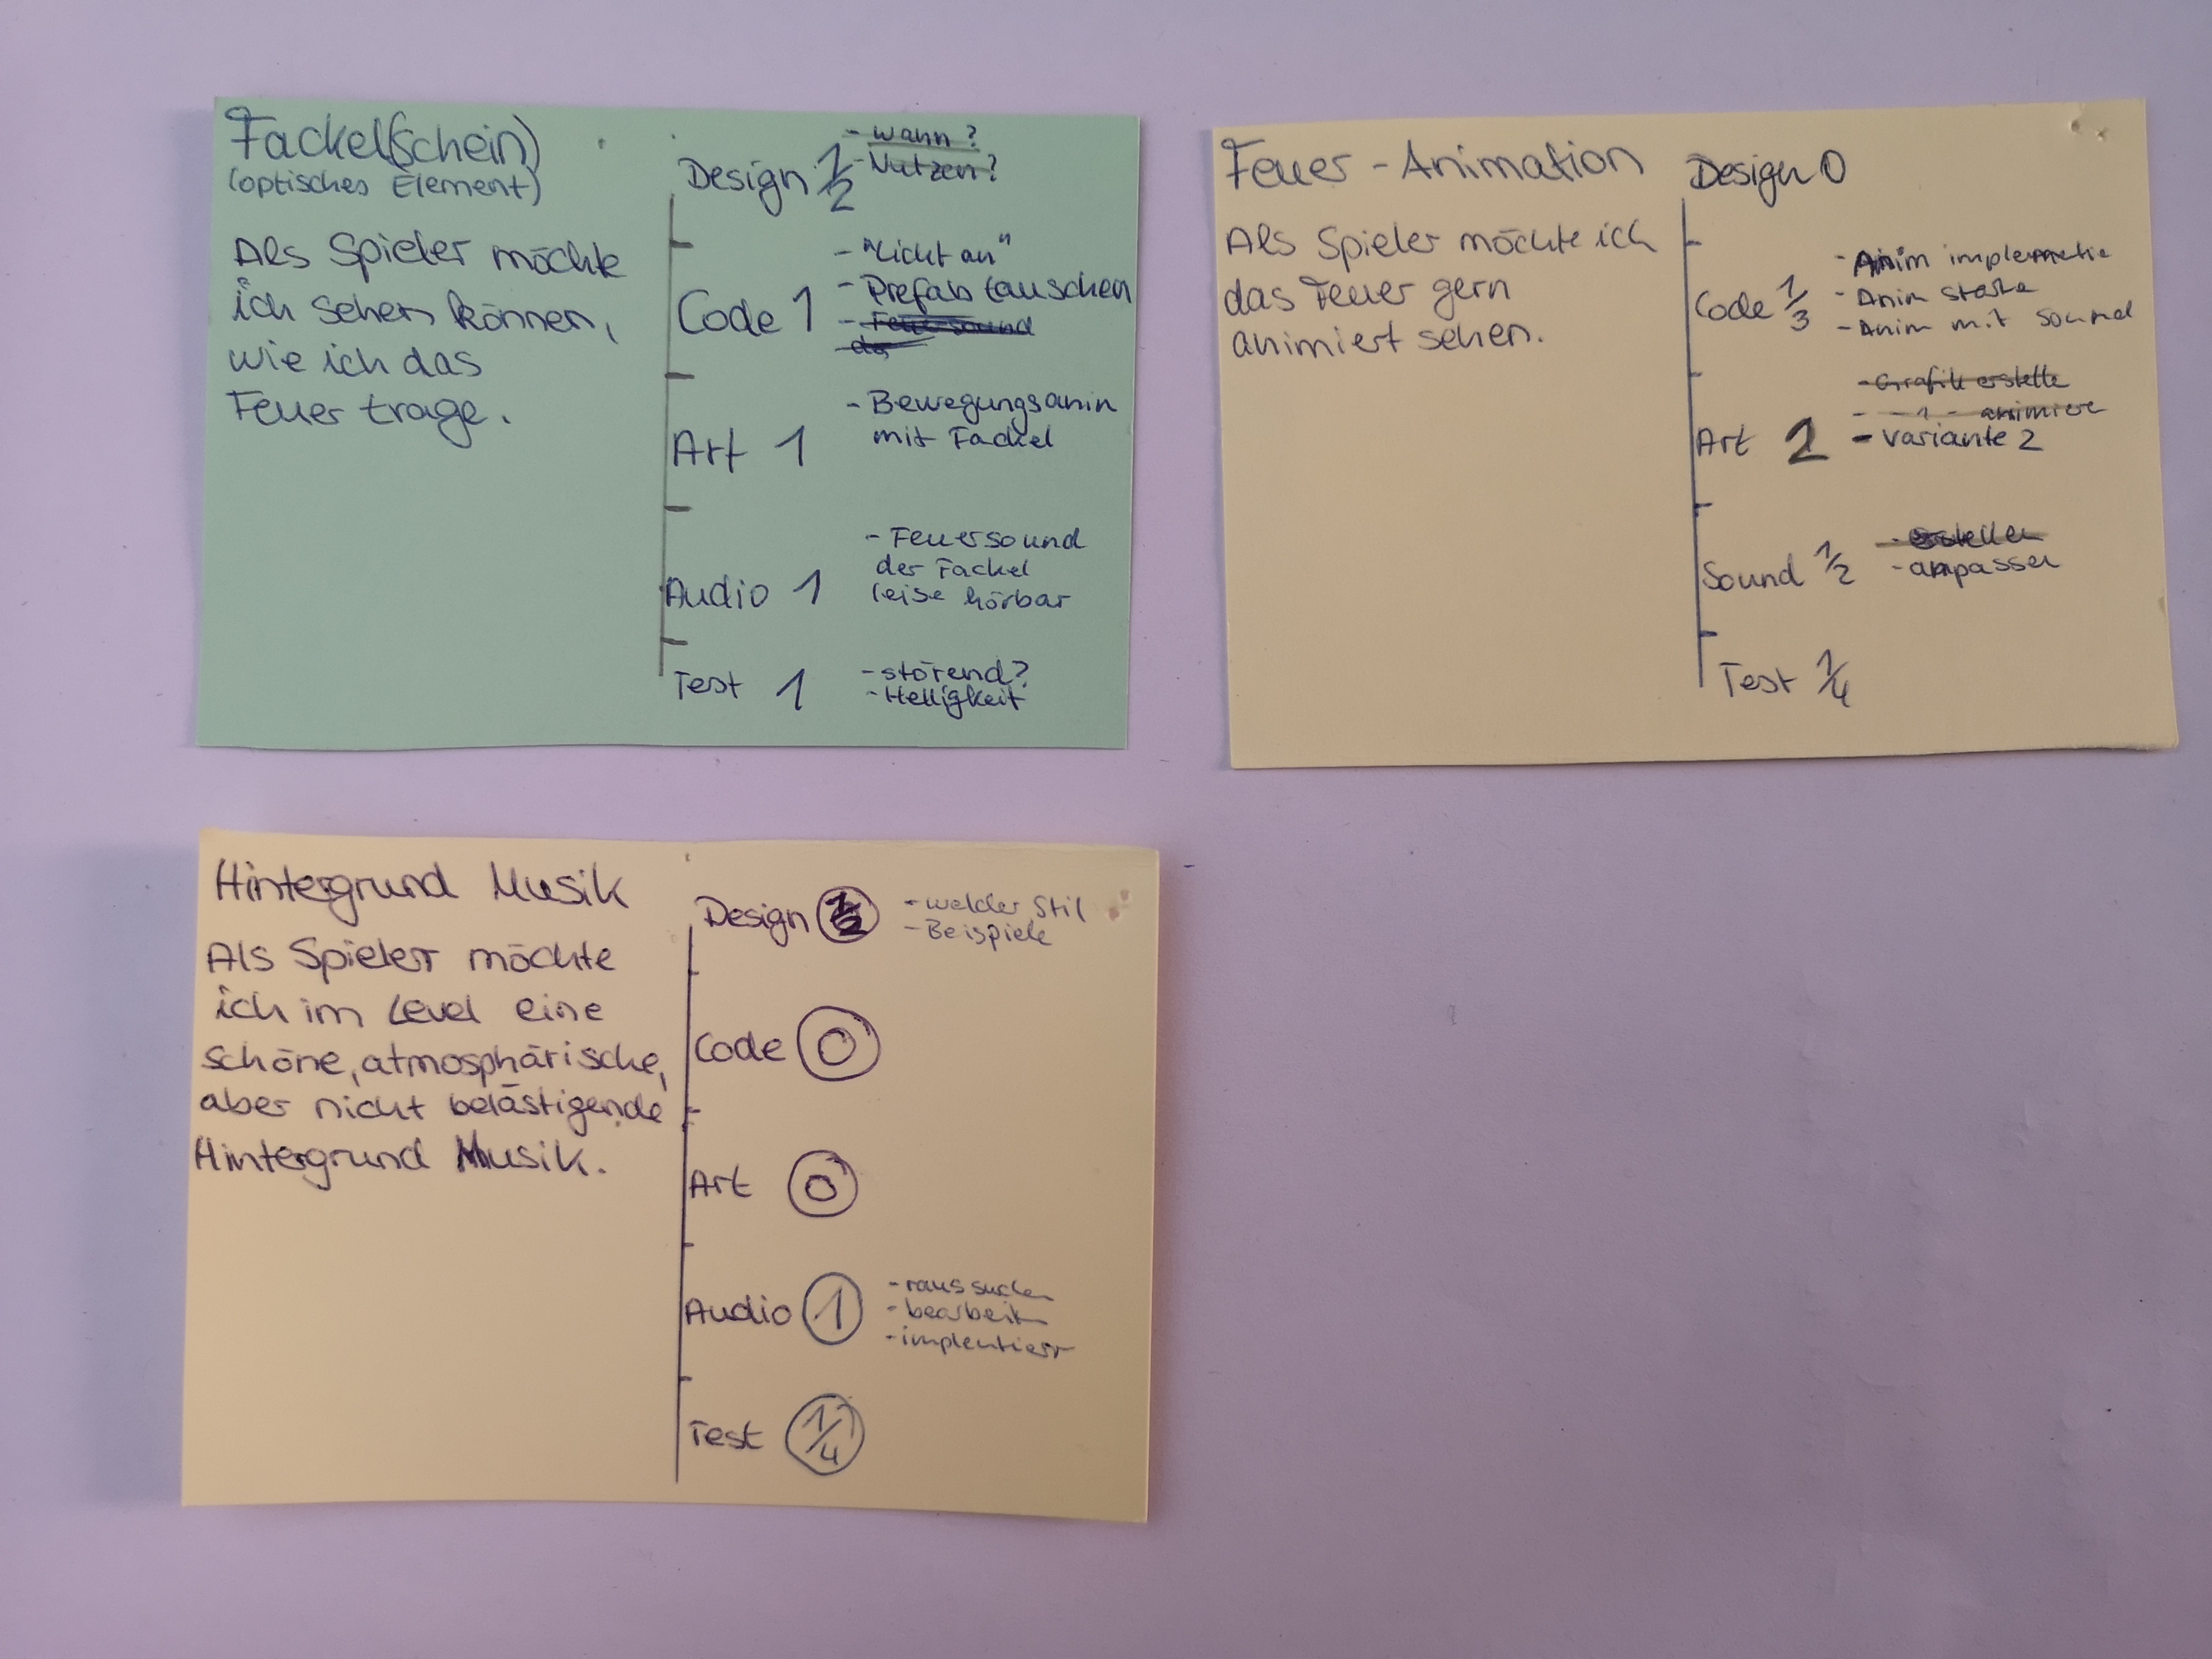 Fackel(schein)
(optisches Element)
Als Spieler möchte
ich sehen können,
wie ich das
Feuer trage.
Design 1/2
- wann?
- Nutzen?
Code 1
- "Licht an"
- Prefab tauschen
- Feuersound
Art 1
- Bewegungsanim
mit Fackel
Audio 1
- Feuersound
der Fackel
leise hörbar
Test 1
- störend?
- Helligkeit
Feuer-Animation
Als Spieler möchte ich
das Feuer gern
animiert sehen.
Design 0
Code 1/3
- Anim
- Anim
- Anim mit Sound
Art 2
- Grafik erstelle
- animiere
- Variante 2
Sound 1/2
- erstellen
- anpassen
Test 1/4
Hintergrund Musik
Als Spieler möchte
ich im Level eine
schöne, atmosphärische,
aber nicht belästigende
Hintergrund Musik.
Design
- welcher Stil
- Beispiele
Code 0
Art 0
Audio 1
- raussuchen
- bearbeiten
- implentier
Test 1/4